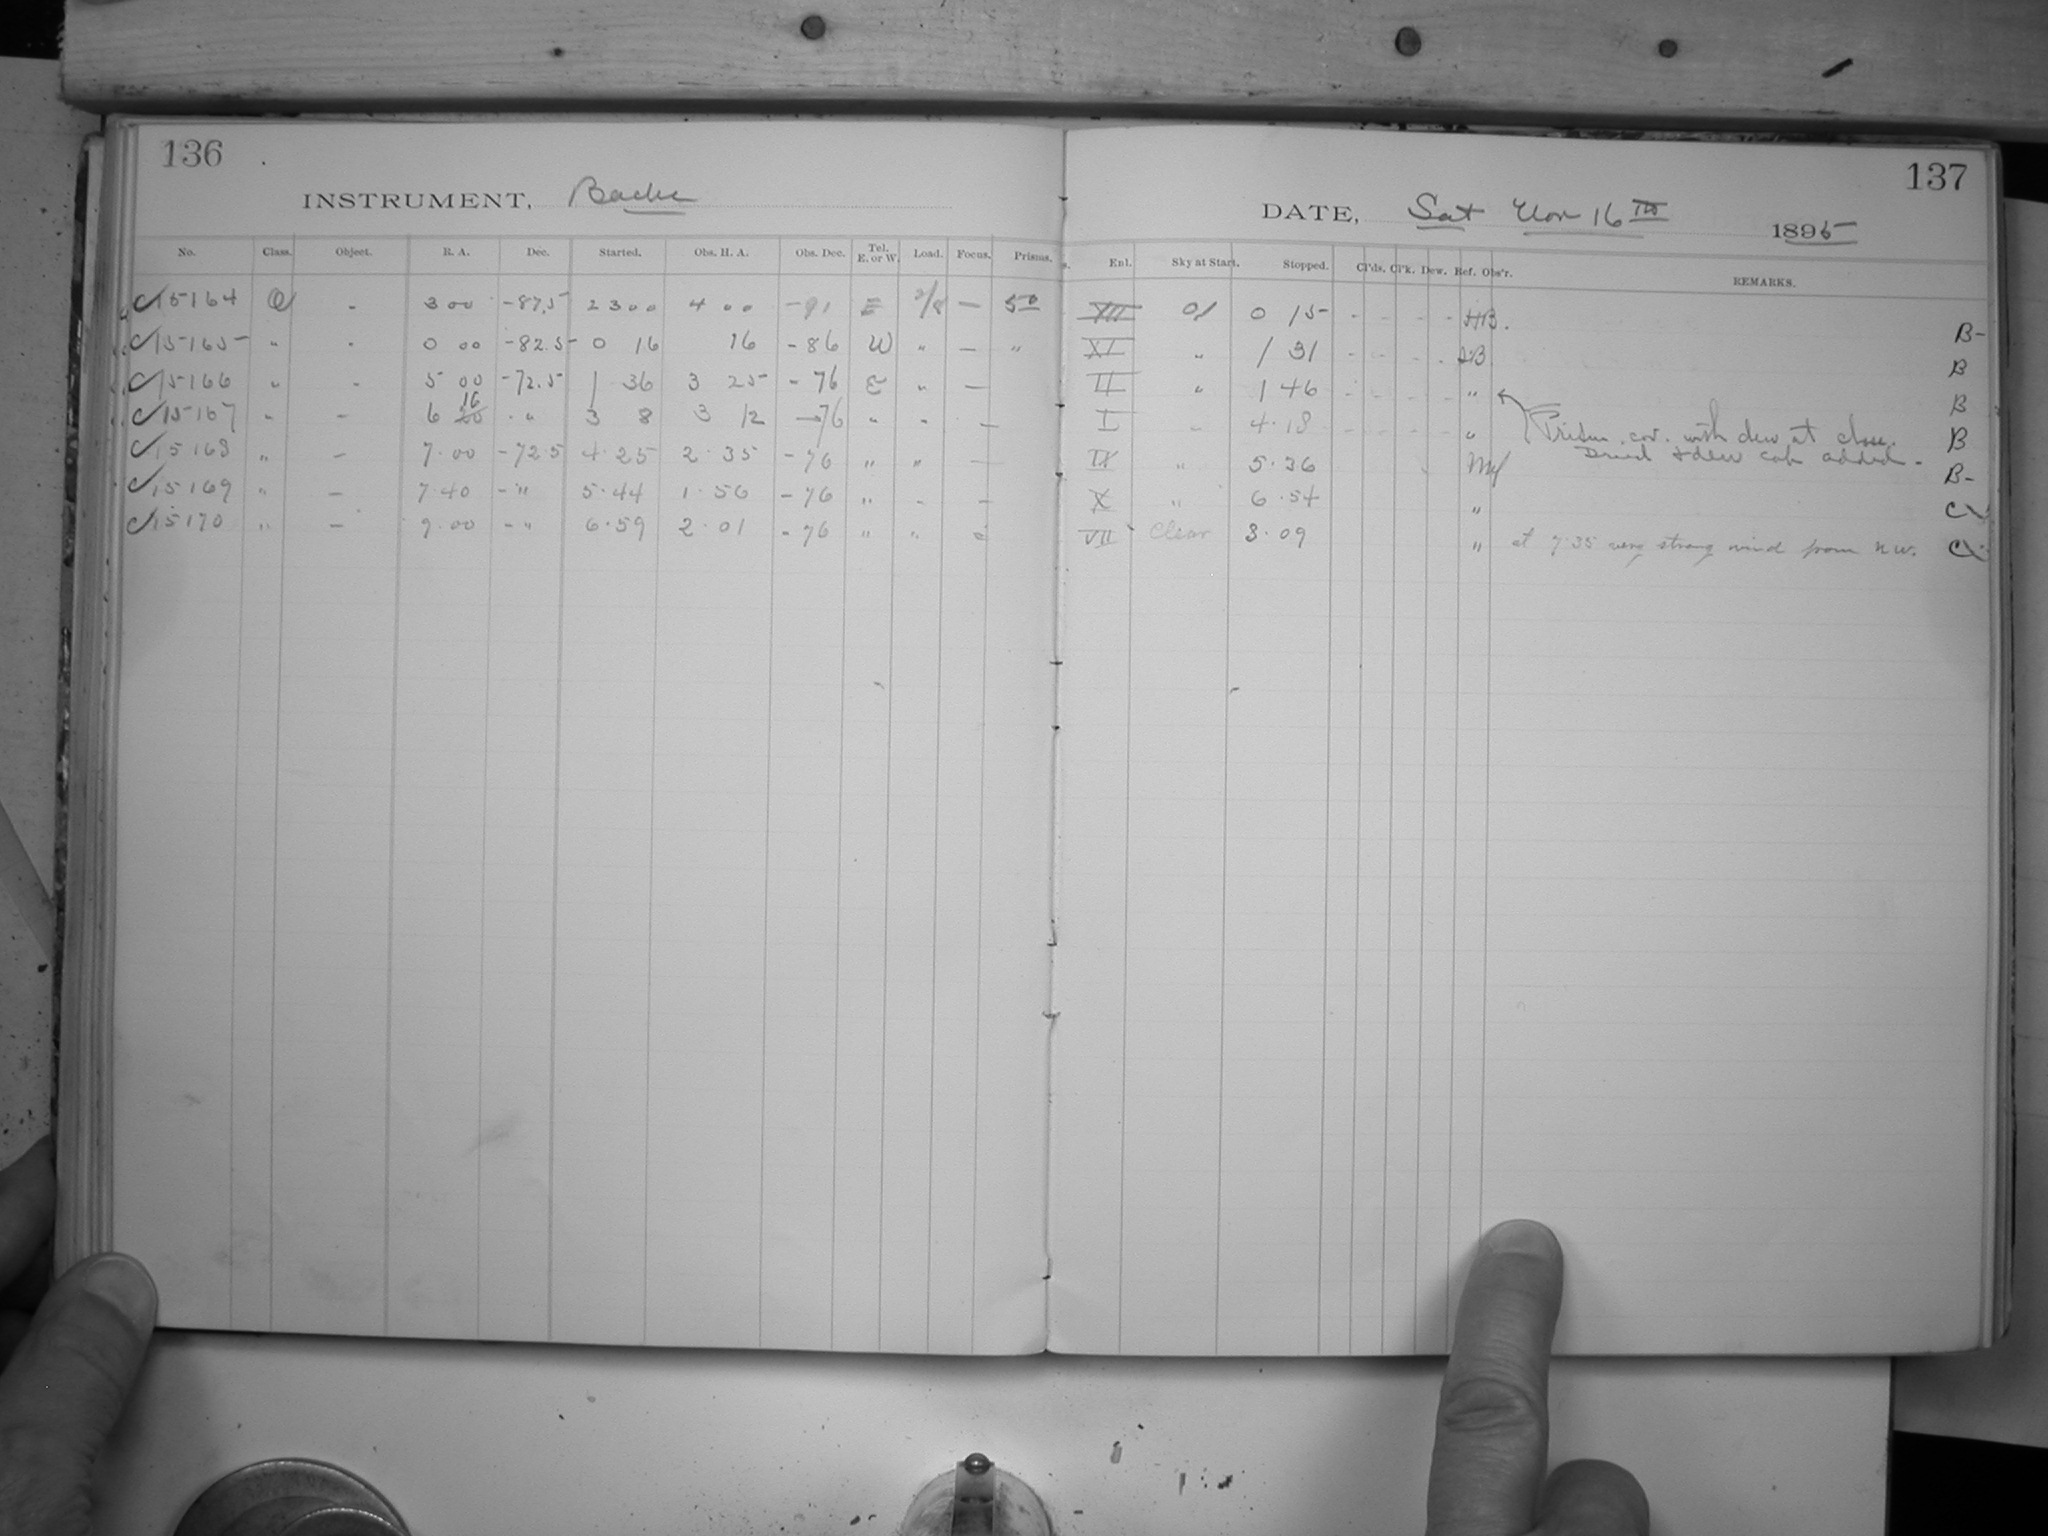 136
137
INSTRUMENT, Bache
DATE, Sat Nov 16th 1895
No. Class. Object. R. A. Dec. Started. Obs. H. A. Obs. Dec. Tel. E. or W. Load. Focus. Prisms. Enl. Sky at Start. Stopped. Cl'ds. Cl'k. Dew. Ref. Obs'r. REMARKS.
15164 - 3 00 -87.5 23 00 4 00 -91 E 2/8 — 5° XII 0 15 - - - - HB. B-
15165 " - 0 00 -82.5 0 16 16 -86 W " — " XI " 1 31 - - - - HB. B
15166 " - 5 00 -72.5 1 36 3 25 -76 E " — II " 1 46 - - - - " B
15167 " - 6 16 20 " 3 8 3 12 -76 " " — I " 4.18 - - - - " Prism cov. with dew at close. B
15168 " - 7.00 -72.5 4.25 2.35 -76 " " — IX " 5.36 " Dried & dew cap added. B-
15169 " - 7.40 -" 5.44 1.56 -76 " - — X " 6.54 " C
15170 " - 9.00 -" 6.59 2.01 -76 " " VII Clear 3.09 " at 7.35 very strong wind from N.W. C